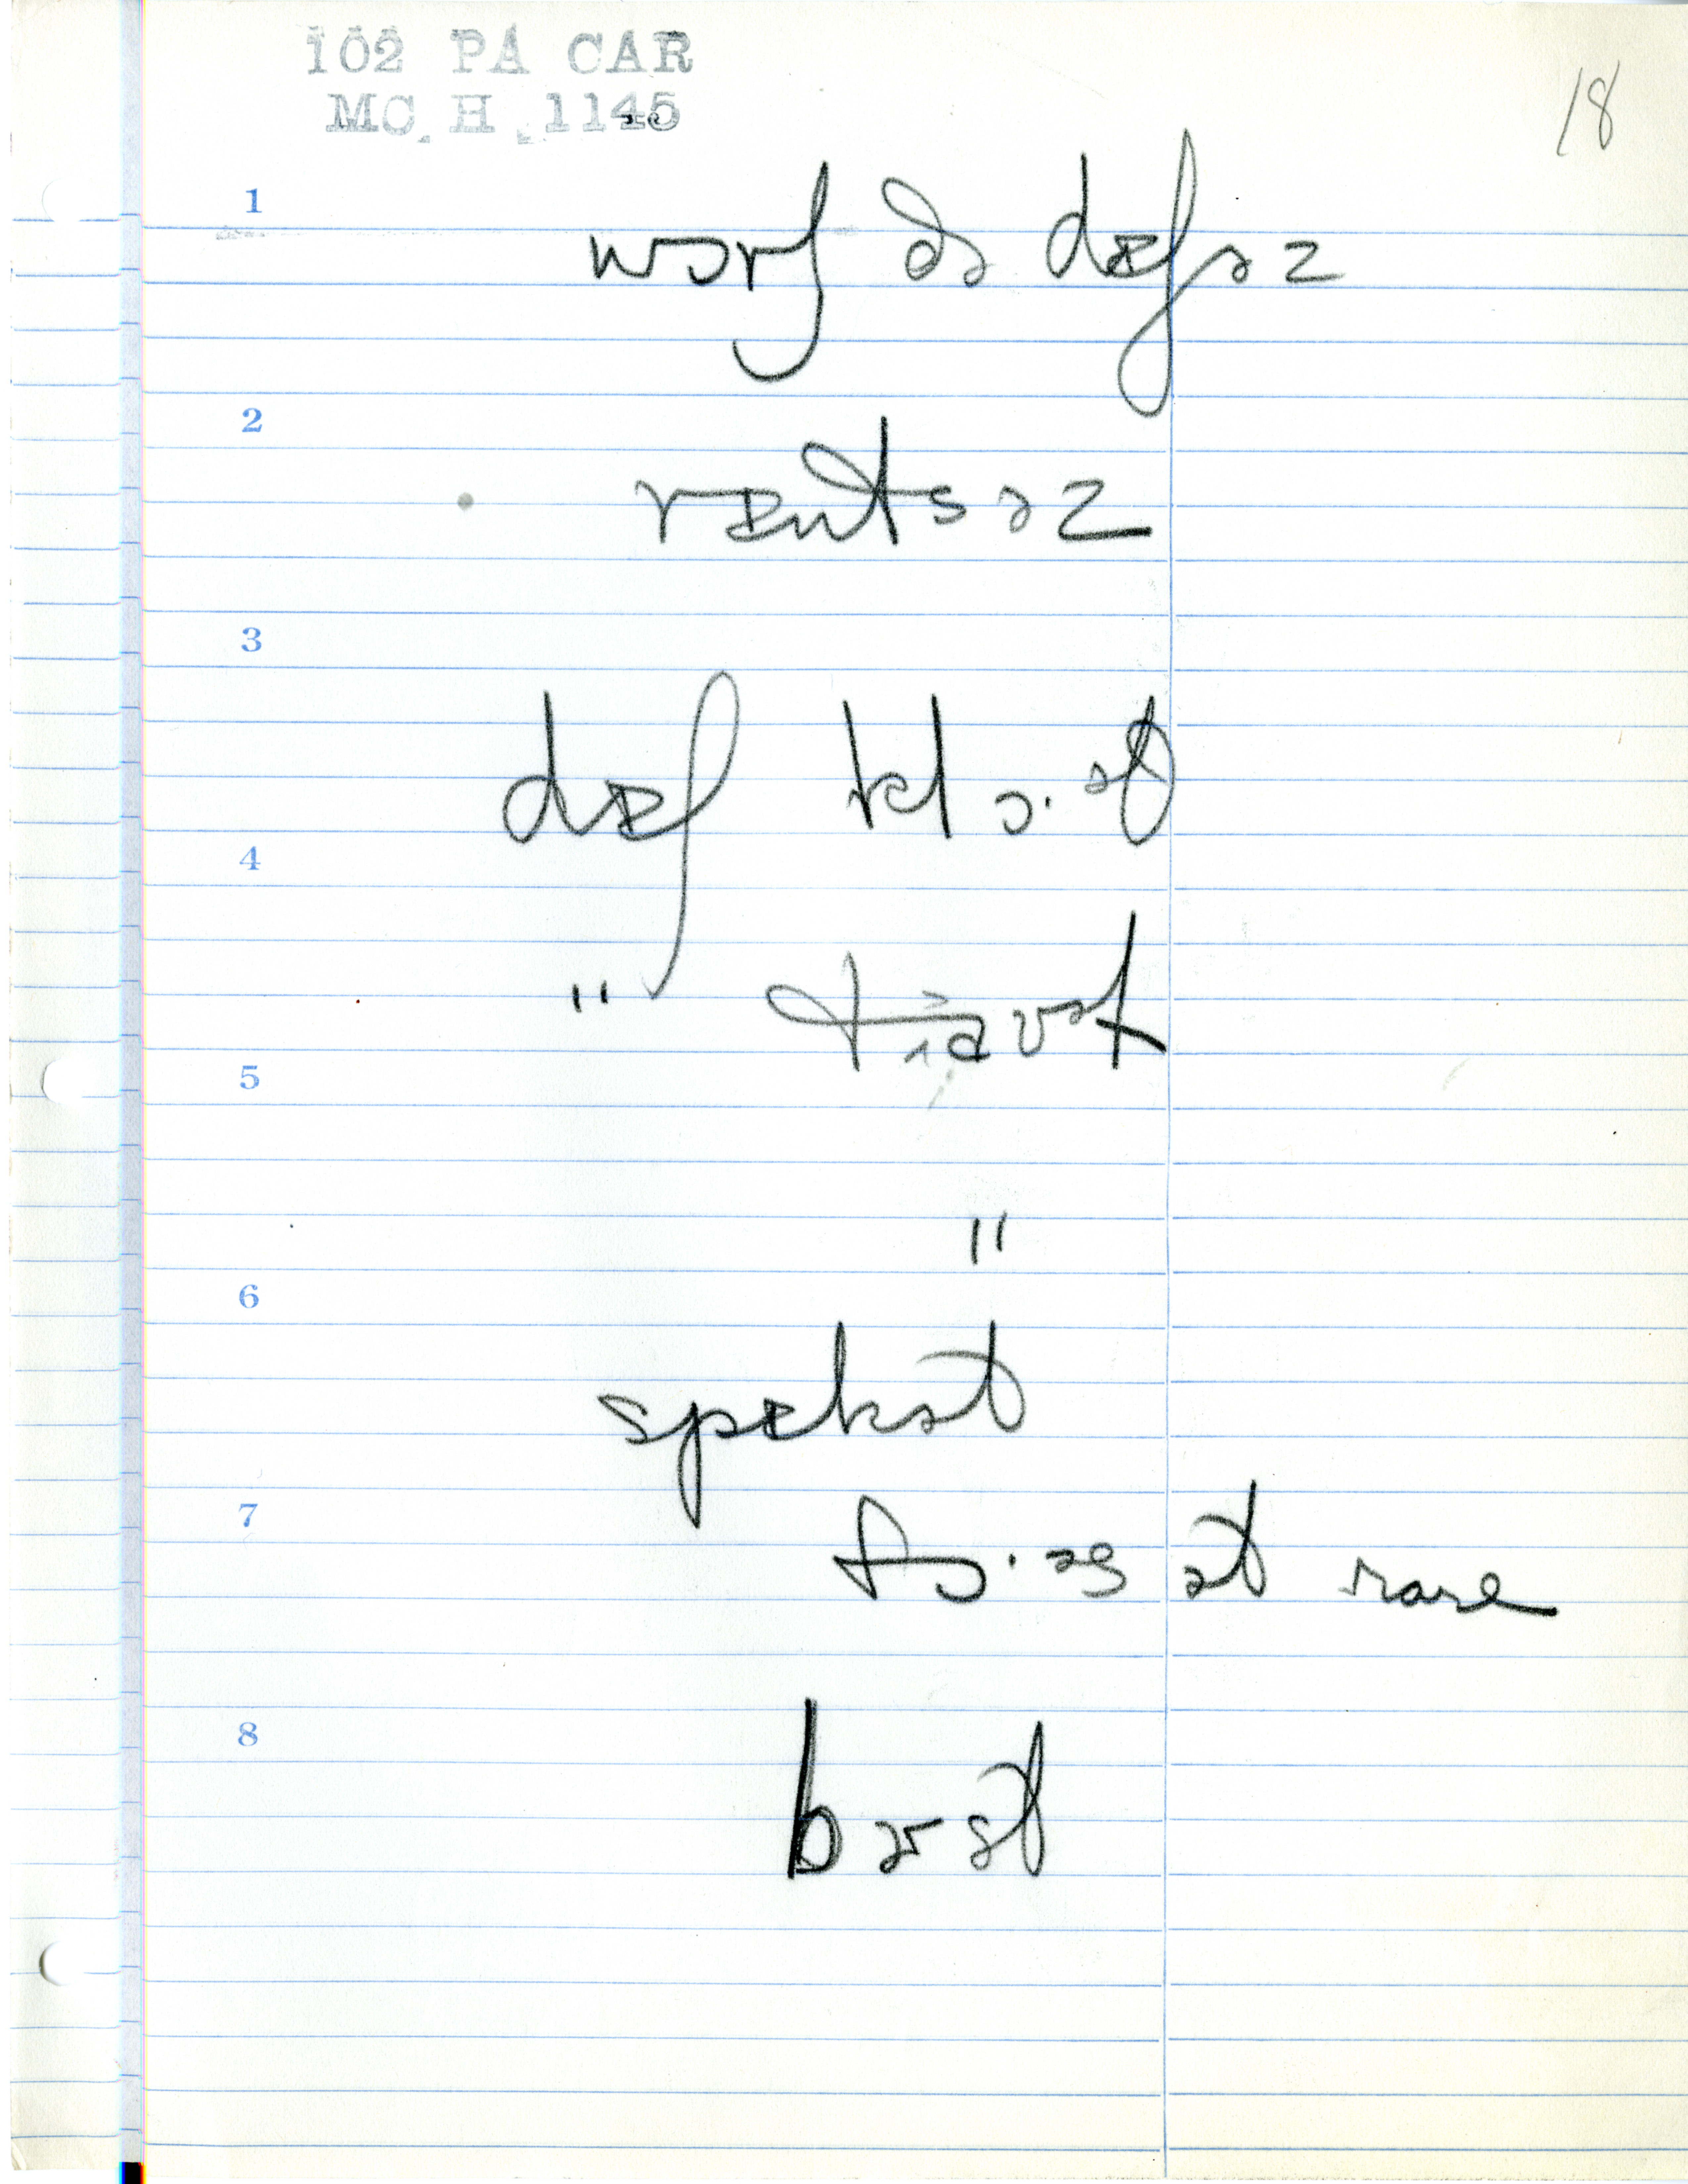 102 PA CAR
MC H 1145
18
1
wɔrʃ ðə dɪʃəz
2
rɪntsəz
3
dɪʃ klɔ·ət
4
" tɹavəl
5
"
6
spɪkət
7
fɔ·əs ət rare
8
bərst